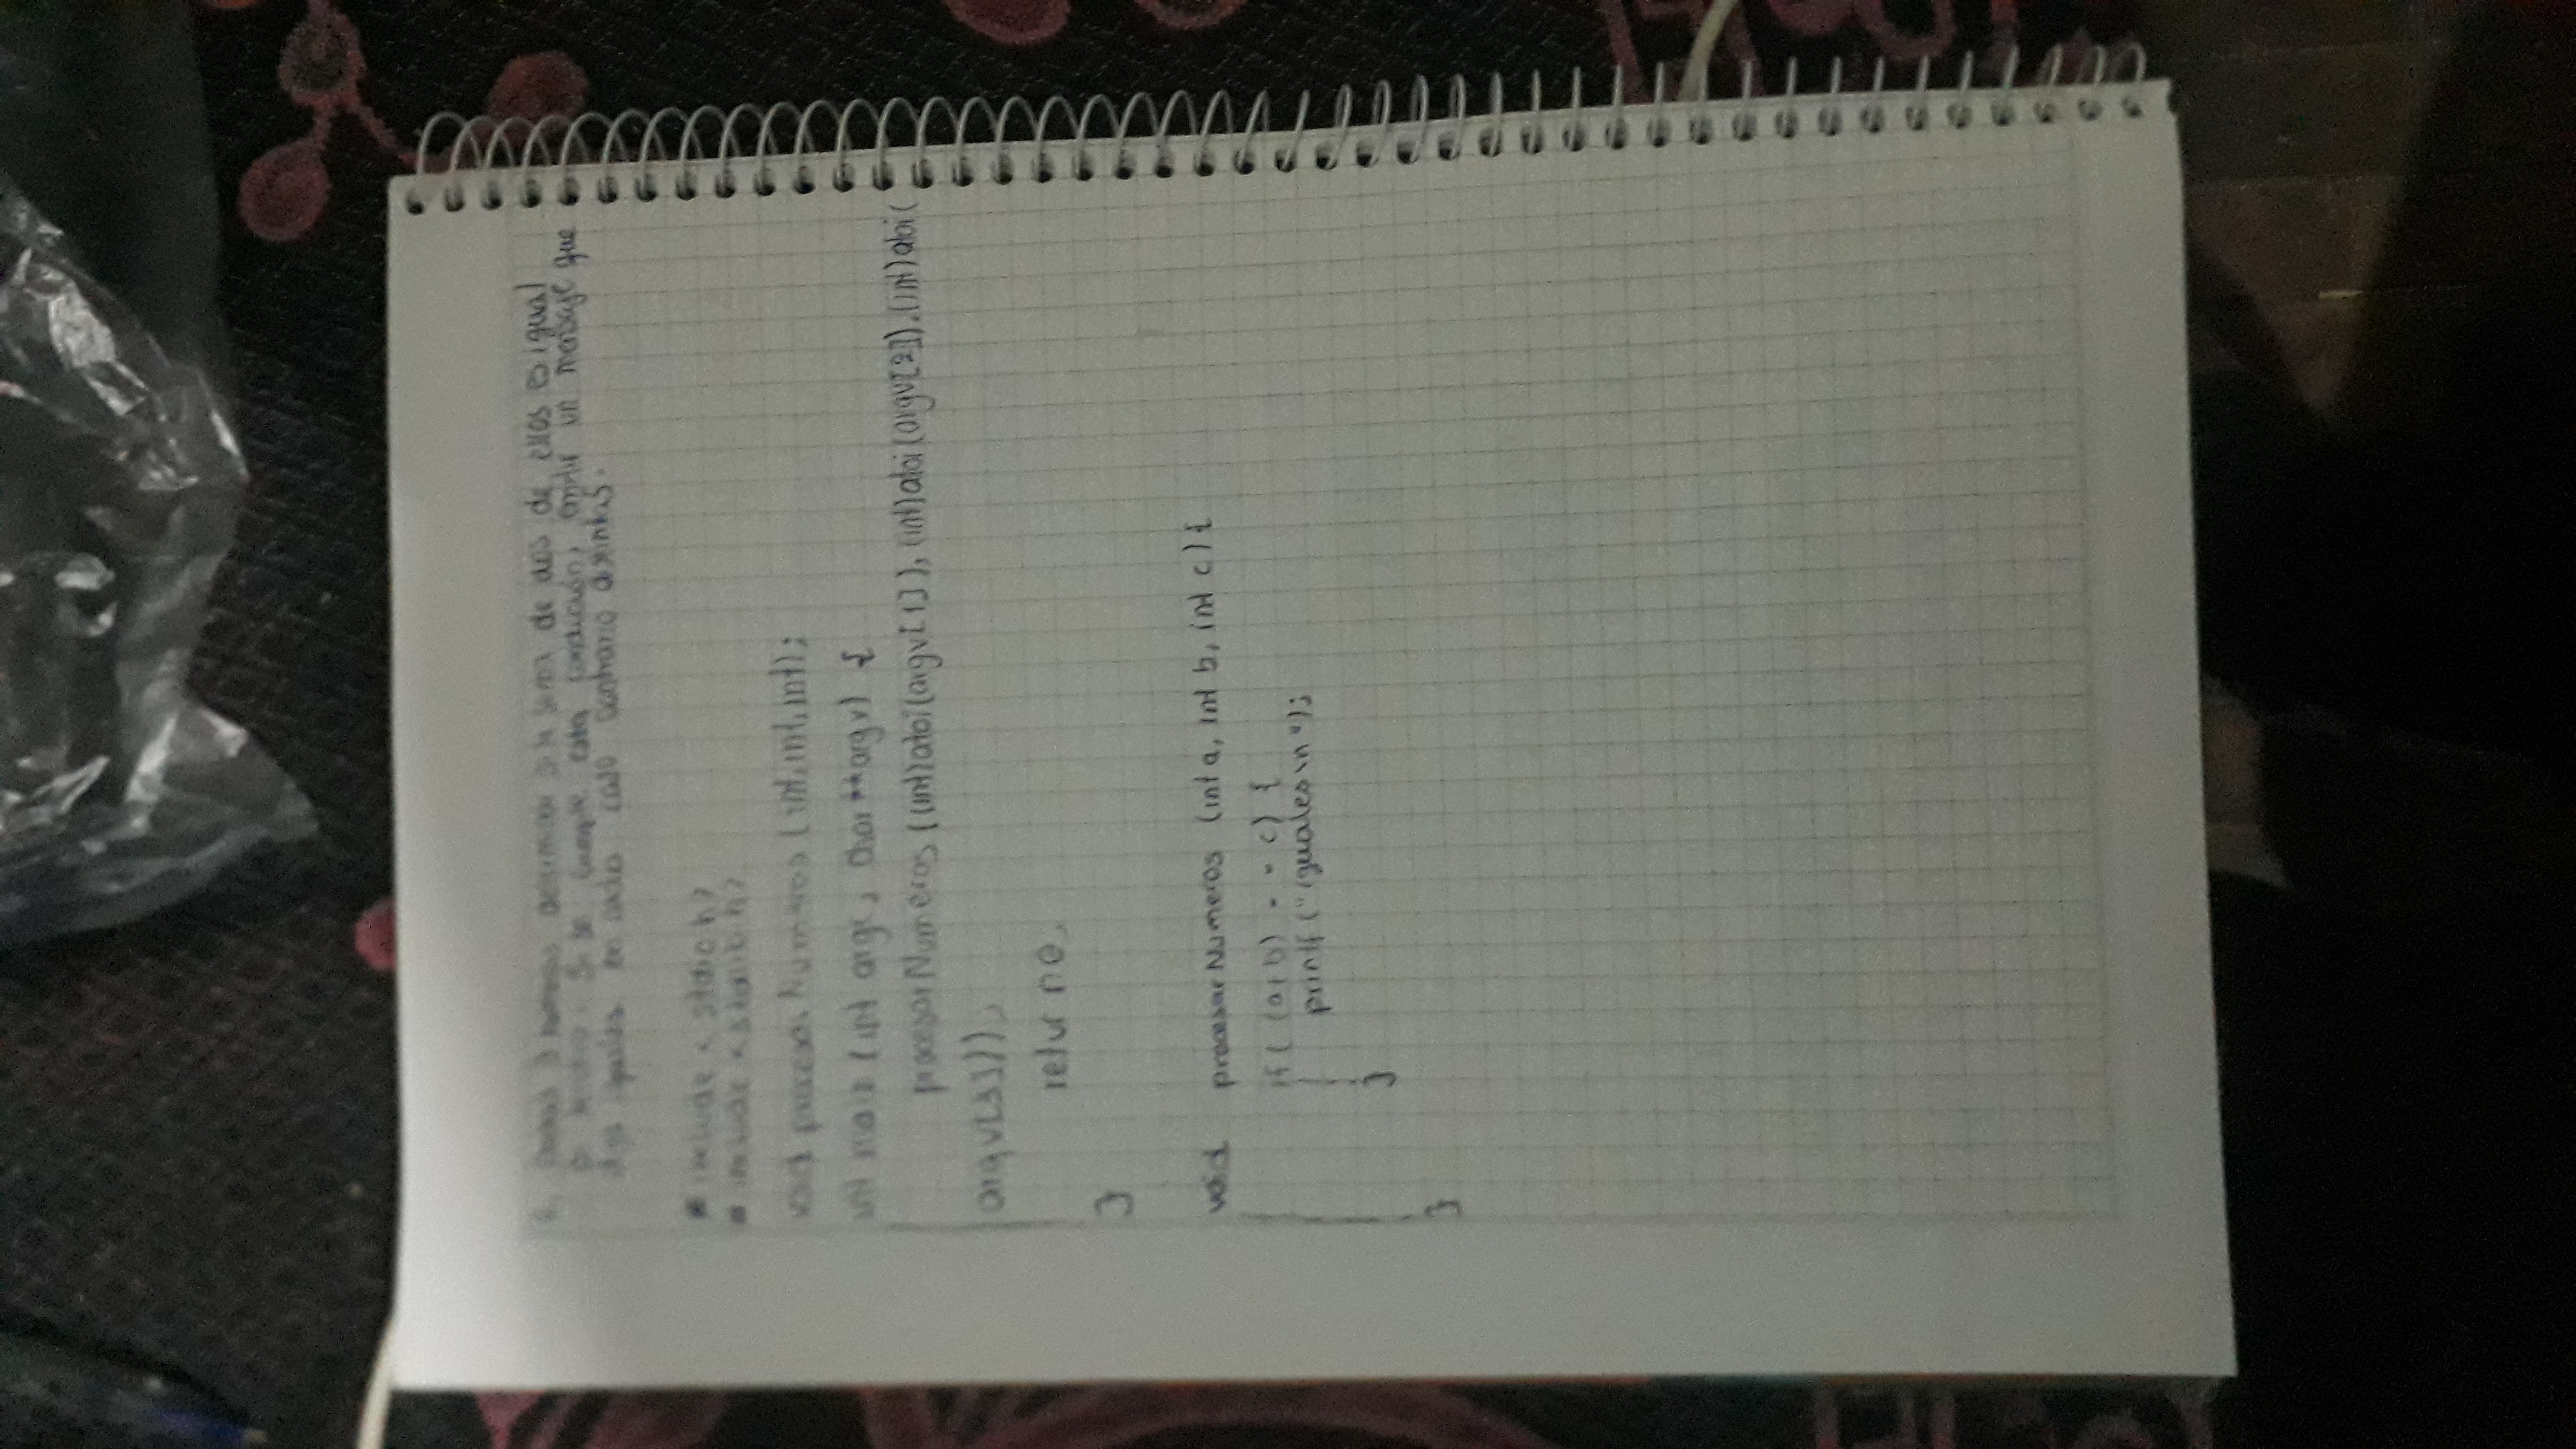 3 numeros determinar si la suma de dos de ellos es igual
Si se cumple esta condición, emitir un mensaje que
diga iguales en caso contrario distintas.
# include < stdio.h>
# include <stdlib.h>
void procesarNumeros (int,int,int);
int main (int argc, char **argv) {
procesarNumeros ((int)atoi(argv[1]), (int)atoi(argv[2]),(int)atoi(
argv[3]));
return 0;
}
void procesarNumeros (int a, int b, int c) {
if( (a+b) == c) {
printf ("iguales\n");
}
}